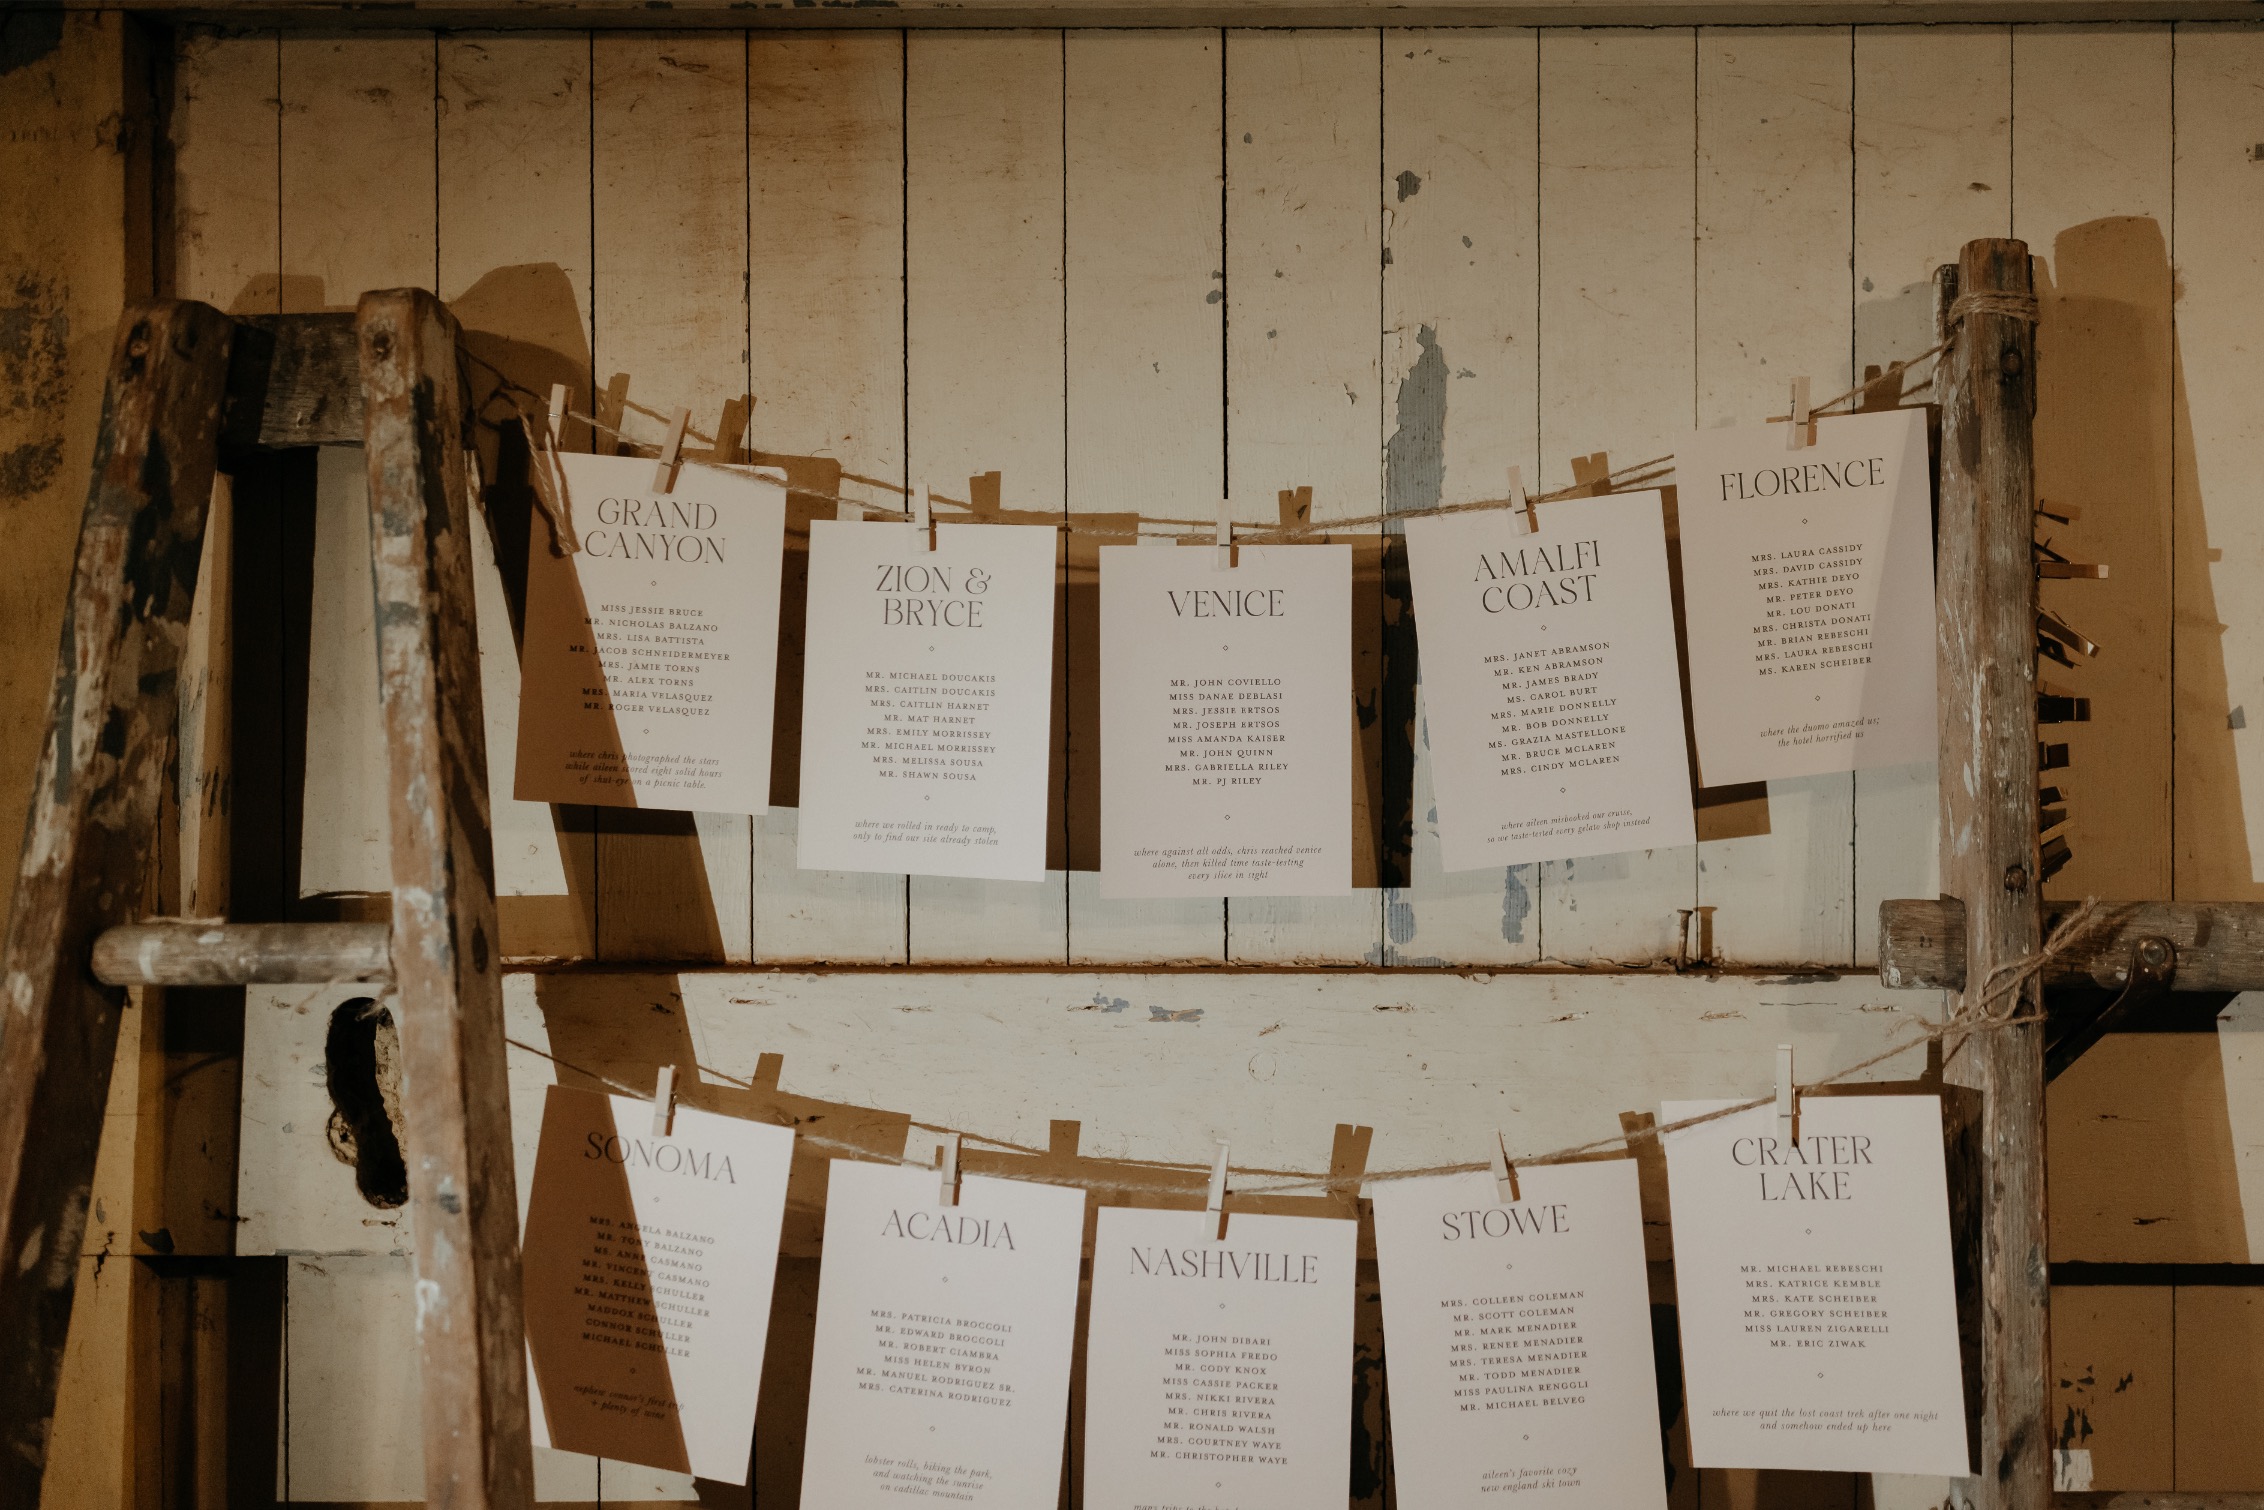 GRAND
CANYON
MISS JESSIE BRUCE
MR. NICHOLAS BALZANO
MRS. LISA BATTISTA
MR. JACOB SCHNEIDERMEYER
MRS. JAMIE TORNS
MR. ALEX TORNS
MRS. MARIA VELASQUEZ
MR. ROGER VELASQUEZ
where chris photographed the stars
while aileen scored eight solid hours
of shut-eye on a picnic table.
ZION &
BRYCE
MR. MICHAEL DOUCAKIS
MRS. CAITLIN DOUCAKIS
MRS. CAITLIN HARNET
MR. MAT HARNET
MRS. EMILY MORRISSEY
MR. MICHAEL MORRISSEY
MRS. MELISSA SOUSA
MR. SHAWN SOUSA
where we rolled in ready to camp,
only to find our site already stolen
VENICE
MR. JOHN COVIELLO
MISS DANAE DEBLASI
MRS. JESSIE ERTSOS
MR. JOSEPH ERTSOS
MISS AMANDA KAISER
MR. JOHN QUINN
MRS. GABRIELLA RILEY
MR. PJ RILEY
where against all odds, chris reached venice
alone, then killed time taste-testing
every slice in sight
AMALFI
COAST
MRS. JANET ABRAMSON
MR. KEN ABRAMSON
MR. JAMES BRADY
MS. CAROL BURT
MRS. MARIE DONNELLY
MR. BOB DONNELLY
MS. GRAZIA MASTELLONE
MR. BRUCE MCLAREN
MRS. CINDY MCLAREN
where aileen misbooked our cruise,
so we taste-tested every gelato shop instead
FLORENCE
MRS. LAURA CASSIDY
MRS. DAVID CASSIDY
MRS. KATHIE DEYO
MR. PETER DEYO
MR. LOU DONATI
MRS. CHRISTA DONATI
MR. BRIAN REBESCHI
MRS. LAURA REBESCHI
MS. KAREN SCHEIBER
where the duomo amazed us;
the hotel horrified us
SONOMA
MRS. ANGELA BALZANO
MR. TONY BALZANO
MS. ANNE CASMANO
MR. VINCENT CASMANO
MRS. KELLY SCHULLER
MR. MATTHEW SCHULLER
MADDOX SCHULLER
CONNOR SCHULLER
MICHAEL SCHULLER
nephew connor's first trip
+ plenty of wine
ACADIA
MRS. PATRICIA BROCCOLI
MR. EDWARD BROCCOLI
MR. ROBERT CIAMBRA
MISS HELEN BYRON
MR. MANUEL RODRIGUEZ SR.
MRS. CATERINA RODRIGUEZ
lobster rolls, biking the park,
and watching the sunrise
on cadillac mountain
NASHVILLE
MR. JOHN DIBARI
MISS SOPHIA FREDO
MR. CODY KNOX
MISS CASSIE PACKER
MRS. NIKKI RIVERA
MR. CHRIS RIVERA
MR. RONALD WALSH
MRS. COURTNEY WAYE
MR. CHRISTOPHER WAYE
many trips to the
STOWE
MRS. COLLEEN COLEMAN
MR. SCOTT COLEMAN
MR. MARK MENADIER
MRS. RENEE MENADIER
MRS. TERESA MENADIER
MR. TODD MENADIER
MISS PAULINA RENGGLI
MR. MICHAEL BELVEG
aileen's favorite cozy
new england ski town
CRATER
LAKE
MR. MICHAEL REBESCHI
MRS. KATRICE KEMBLE
MRS. KATE SCHEIBER
MR. GREGORY SCHEIBER
MISS LAUREN ZIGARELLI
MR. ERIC ZIWAK
where we quit the lost coast trek after one night
and somehow ended up here